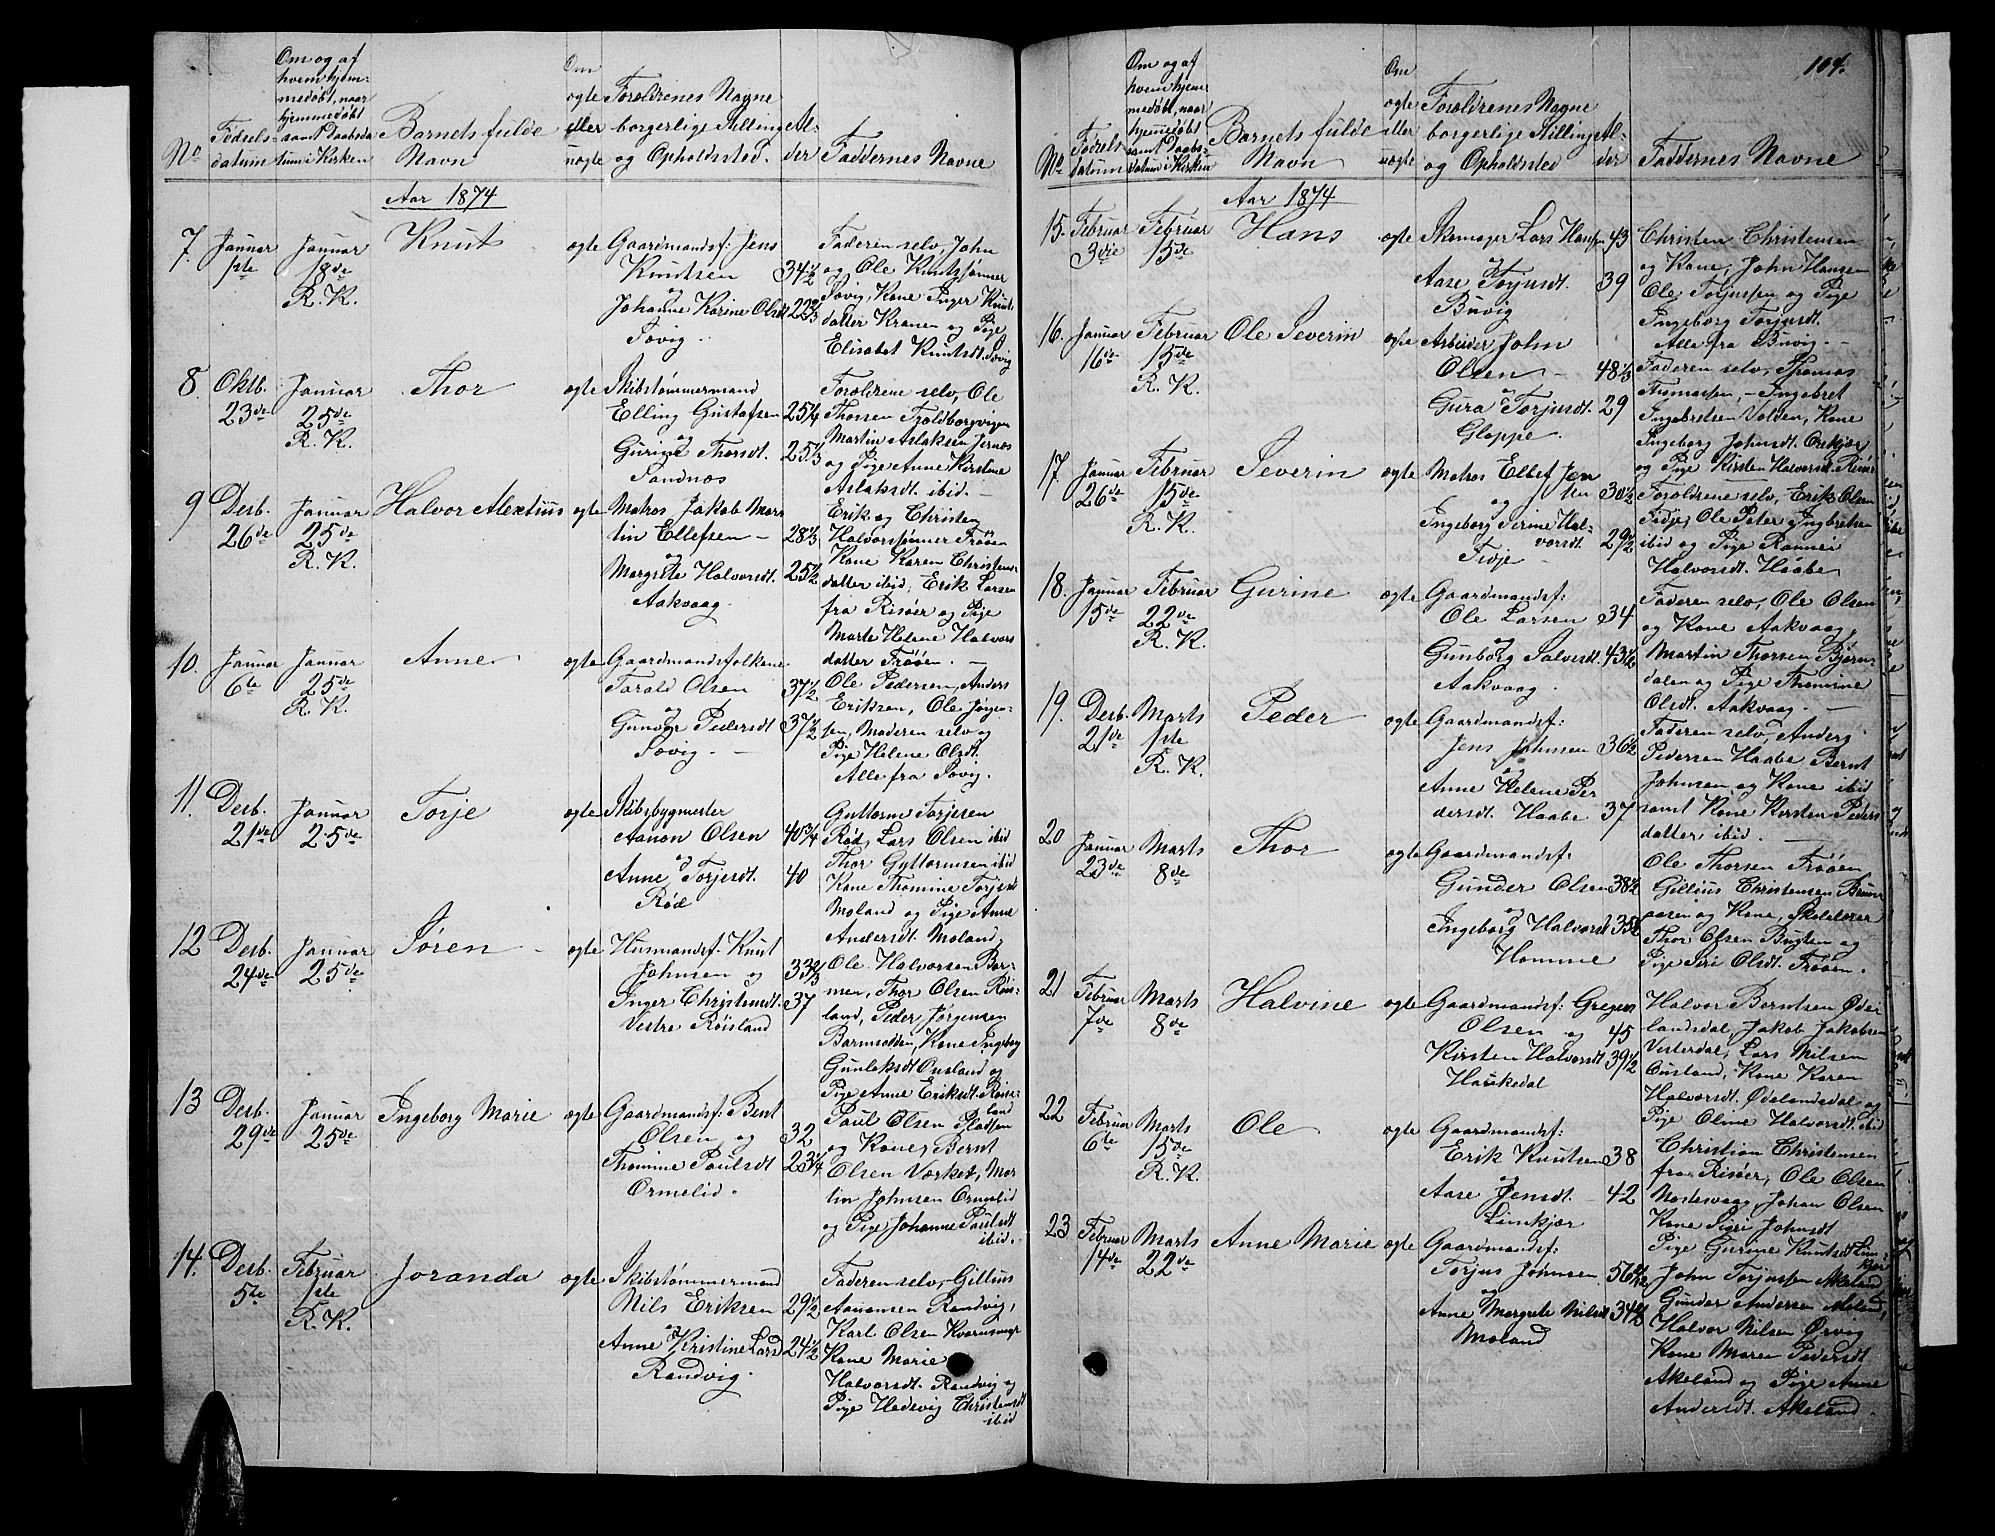 104.
No
Fødsels-
datum
Om og af
hvem hjem-
medøbt, naar
hjemmedøbt
samt Daabsda-
tum i Kirken
Barnets fulde
Navn
Om
ægte
eller
uægte
Forældrenes Navne
borgerlige Stilling
og Opholdssted.
Al-
der
Faddernes Navne
Aar 1874
7. Januar 1ste
Januar 18de R. K.
Knut
ægte
Gaardmandsf: Jens
Knudsen 34 1/2
og
Johanne Karine Olsdt 22 2/3
Søvig.
Faderen selv, John
og Ole Knutssønner
Søvig, Kone Inger Knuts
datter Kranen og Pige
Elisabet Knutsdt. Søvig
8. Oktb. 23de
Januar 25de R. K.
Thor
ægte
Skibstømmermand
Elling Gustafsen 25 1/4
og
Gurine Thorsdt. 25 1/3
Sandnæs
Forældrene selv, Ole
Thorsen Fjoldborgvigen
Martin Aslaksen Jernæs
og Pige Anne Kirstine
Aslaksdt. ibid. —
9 Desb. 26de
Januar 25de R. K.
Halvor Alextius
ægte
Matros Jakob Mar
tin Ellefsen — 28 1/3
og
Margrete Halvorsdt. 25 1/2
Aakvaag.
Erik og Christen
Halvorssønner Frøøen
Kone Karen Christens-
datter ibid, Erik Larsen
fra Risøer og Pige
Marte Helene Halvors
datter Frøøen. —
10. Januar 6te
Januar 25de R. K.
Anne
ægte
Gaardmandsfolkene
Tarald Olsen 37 1/2
og
Gunder Pedersdt 37 1/2
Søvig —
Ole Pedersen, Anders
Eriksen, Ole Jørgen-
sen, Moderen selv og
Pige Helene Olsdt.
Alle fra Søvig.
11. Desb. 21de
Januar 25de
Torje
ægte
Skibsbygmester
Aanon Olsen 40 3/4
og
Anne Torjesdt. 40
Rød
Guttorm Torjesen
Rød, Lars Olsen ibid
Thor Guttormsen ibid
Kone Thomine Torjesdt
Moland og Pige Anne
Andersdt. Moland
12 Desb. 24de
Januar 25de
Søren
ægte
Husmandsf. Knut
Johnsen og 33 2/3
Inger Christensdt. 37
Vestre Røisland
Ole Halvorsen Bor-
men, Thor Olsen Røis-
land, Peder Jørgensen
Barmodden, Kone Ingeborg
Gunleksdt Ousland og
Pige Anne Eriksdt. Røis-
land
13 Desb. 29de
Januar 25de
Ingeborg Marie
ægte
Gaardmandsf: Bent
Olsen og 32
Thomine Paulsdt 23 1/4
Ormelid.
Paul Olsen Pladsen
og Kone, Bernt
Olsen Værket, Mar
tin Johnsen Ormelid
og Pige Johanne Paulsdt
ibid.
14. Desb. 5te
Februar 1ste R. K.
Joranda
ægte
Skibstømmermand
Nils Eriksen 29 1/2
og
Anne Kristine Larsd 24 1/2
Randvig.
Faderen selv, Gillius
Aanonsen Randvig,
Karl Olsen
Kone Marie
Halvorsdt. Randvig og
Pige Hedevig Christensdt
ibid
No
Fødsels-
datum
Om og af
hvem hjem
medøbt, naar
hjemmedøbt
samt Daabs-
datum i Kirken
Barnets fulde
Navn
Om
ægte
eller
uægte
Forældrenes Navne
borgerlige Stilling
og Opholdssted
Al-
der
Faddernes Navne
Aar 1874
15. Februar 3die
Februar 15de
Hans
ægte
Skomager Lars Hansen 43
og
Aase Torjusdt. 39
Buvig
Christen Christensen
og Kone, John Hansen
Ole Torjussen og Pige
Ingeborg Torjusdt.
Alle fra Buvig. —
16. Januar 16de
Februar 15de R. K.
Ole Severin
ægte
Arbeider John
Olsen — 48 1/3
og
Gura Torjusdt. 29
Gloppe.
Faderen selv, Thomas
Thomassen, — Ingebret
Ingebretsen Volden, Kone
Ingeborg Johnsdt. Enkjær
og Pige Kirsten Halvorsdt.
17. Januar 26de
Februar 15de R. K.
Severin
ægte
Matros Ellef Jen
sen 30 1/2
og
Ingeborg Sirine Hal-
vorsdt. 29 1/2
Fidje —
Forældrene selv, Erik Olsen
Fidje, Ole Peter Ingbretsen
ibid og Pige Rannei
Halvorsdt. Haabe
18. Januar 15de
Februar 22de R. K.
Gurine
ægte
Gaardmandsf:
Ole Larsen 34
og
Gunborg Salvesdt. 43
Aakvaag.
Faderen selv, Ole Olsen
og Kone Aakvaag,
Martin Thorsen Bjørn-
dalen og Pige Thomine
Olsdt. Aakvaag. —
19. Desb. 21de
Marts 1ste R. K.
Peder
ægte
Gaardmandsf:
Jens Johnsen 36 1/2
og
Anne Helene Pe
dersdt. Haabe 37
Faderen selv, Anders
Pedersen Haabe Bernt
Johnsen og Kone ibid
samt Kone Kirsten Peders
datter ibid. —
20 Januar 23de
Marts 8de
Thor
ægte
Gaardmandsf:
Gunder Olsen 38 1/2
og
Ingeborg Halvorsd 35 1/2
Homme
Ole Thorsen Frøøen
Gillius Christensen Bruun-
aasen og Kone, Skolelærer
Thor Olsen Bugten og
Pige Siri Olsdt. Frøøen.
21 Februar 7de
Marts 8de
Halvine
ægte
Gaardmandsf: Gregers
Olsen og 45
Kirsten Halvorsdt 39 1/2
Haukedal
Halvor Berntsen Øde-
landsdal, Jakob Jakobsen
Vesterdal, Lars Nilsen
Ousland, Kone Karen
Halvorsdt. Ødelandsdal og
Pige Oline Halvorsdt. ibid
22 Februar 6te
Marts 15de R. K.
Ole
ægte
Gaardmandsf:
Erik Knutsen 38
og
Aase Jensdt. — 42
Limkjær
Christian Christensen
fra Risøer, Ole Olsen
Nodevaag, Johan Olsen
Kone Sigri Johnsdt
Pige Gurine Knutsdt Lim-
kjær
23 Februar 14de
Marts 22de
Anne Marie
ægte
Gaardmandsf:
Torjus Johnsen 56
og
Anne Margrete Nilsdt 34
Moland
John Torjussen Akeland
Gunder Andersen Akeland,
Halvor Nilsen Ørvig
Kone Maren Pedersdt
Akeland og Pige Anne
Andersdt. Akeland.